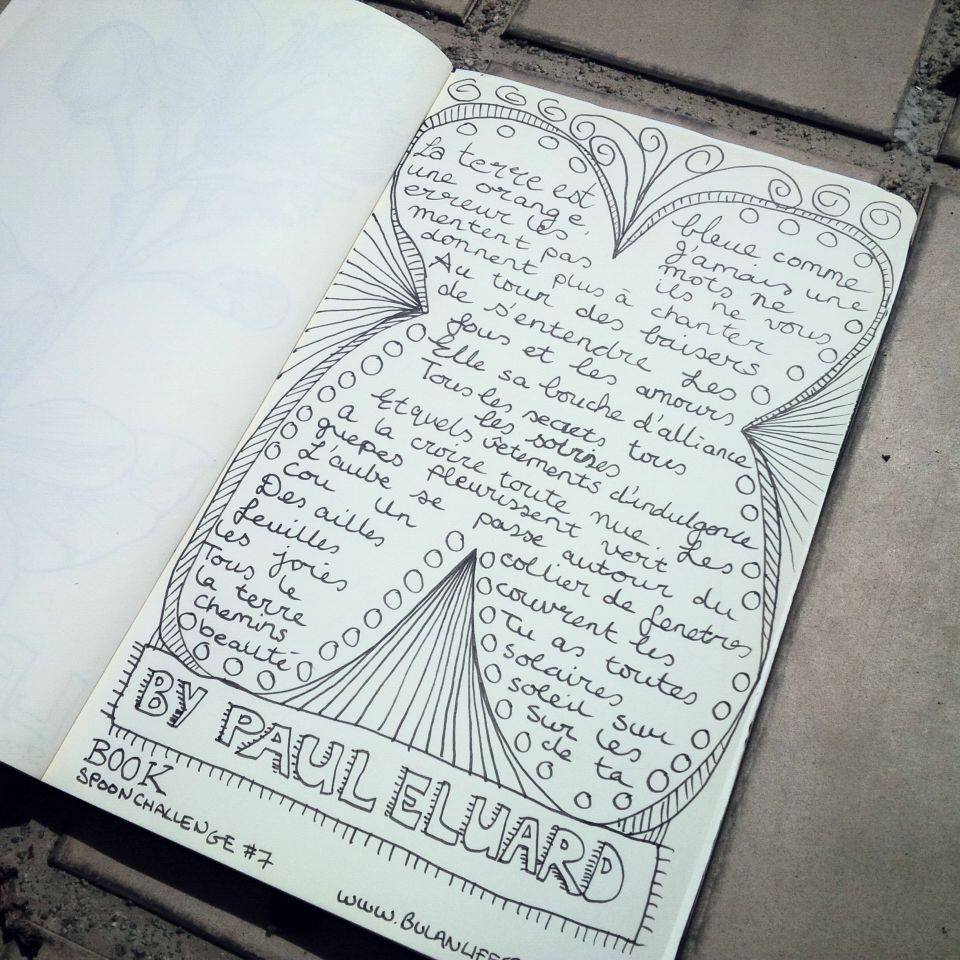 La terre est bleue comme
une orange J'amais une
erreur les mots ne
mentent pas ils ne vous
donnent plus à chanter
Au tour des baisers
de s'entendre Les
fous et les amours
Elle sa bouche d'alliance
Tous les secrets tous
les
Et quels vêtements d'indulgence
a la croire toute nue. Les
guepes fleurissent vert
L'aube se passe autour du
cou un collier de fenetres
Des ailles couvrent les
feuilles Tu as toutes
les joies solaires
Tous le soleil sur
la terre Sur les
chemins de ta
beauté
BY PAUL ELUARD
BOOK
SPOONCHALLENGE #7